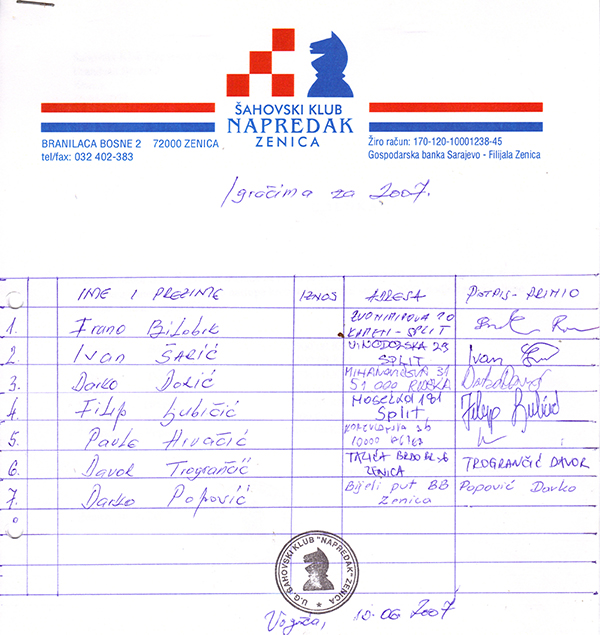 ŠAHOVSKI KLUB
NAPREDAK
ZENICA
BRANILACA BOSNE 2 72000 ZENICA
tel/fax: 032 402-383
Žiro račun: 170-120-10001238-45
Gospodarska banka Sarajevo - Filijala Zenica
Igračima za 2007.
IME I PREZIME IZNOS ADRESA POTPIS-PRIMIO
1. Frano Bilobrk SPLIT
2. Ivan Šarić VINODOLSKA 23 SPLIT Ivan
3. Darko Dorić MIHANOVIĆEVA 31 51 000 RIJEKA
4. Filip Ljubičić MOSEĆKA 181 Split, Filip Ljubičić
5. Pavle Hrvačić 10000
6. Davor Trogrančić ZENICA TROGRANČIĆ DAVOR
7. Darko Popović Bijeli put BB Zenica Popović Darko
U.G. ŠAHOVSKI KLUB "NAPREDAK" ZENICA
10.06 2007